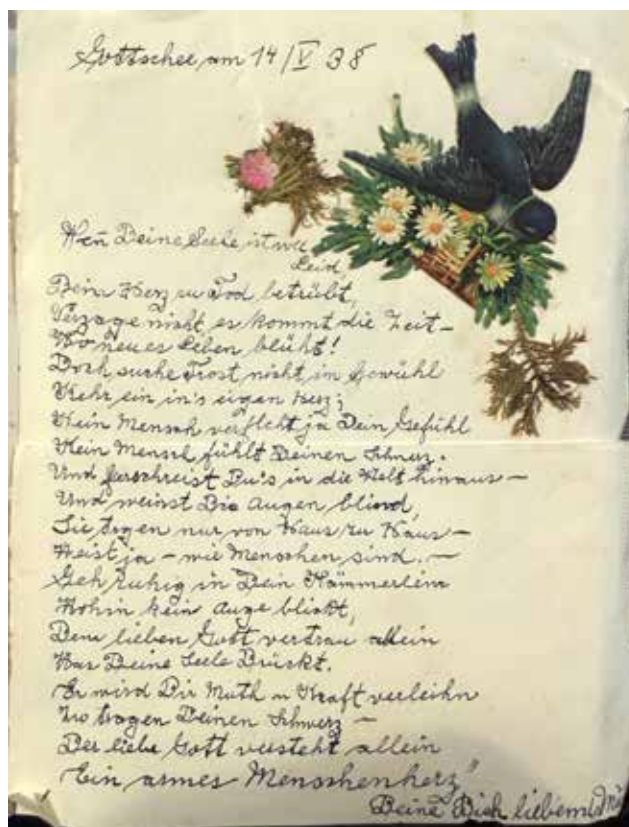 Gottschee am 14/V 38
Wen̄ Deine Seele ist voll
Leid
Dein Herz zu Tod betrübt,
Verzage nicht, es kommt die Zeit –
Wo neues Leben blüht!
Doch suche Trost nicht im Gewühl
Kehr ein in's eigen Herz;
Kein Mensch versteht ja Dein Gefühl
Kein Mensch fühlt Deinen Schmerz.
Und schreist Du's in die Welt hinaus –
Und weinst Die Augen blind,
Sie tragen nur von Haus zu Haus –
Weist ja – wie Menschen sind. –
Geh ruhig in Dein Kämmerlein
Wohin kein Auge blickt,
Dem lieben Gott vertrau allein
Was Deine Seele Drückt.
Er wird Dir Muth u Kraft verleihn
Zu tragen Deinen Schmerz –
Der liebe Gott versteht allein
Ein armes Menschenherz"
Deine Dich liebende